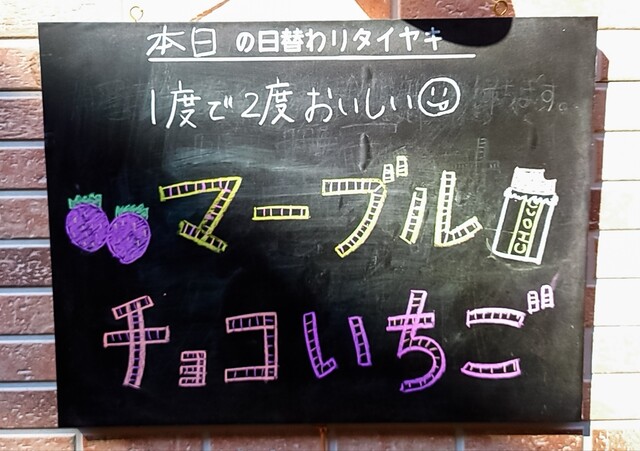 本日の日替わりタイヤキ
1度で2度おいしい
マーブル
CHOCO
チョコいちご